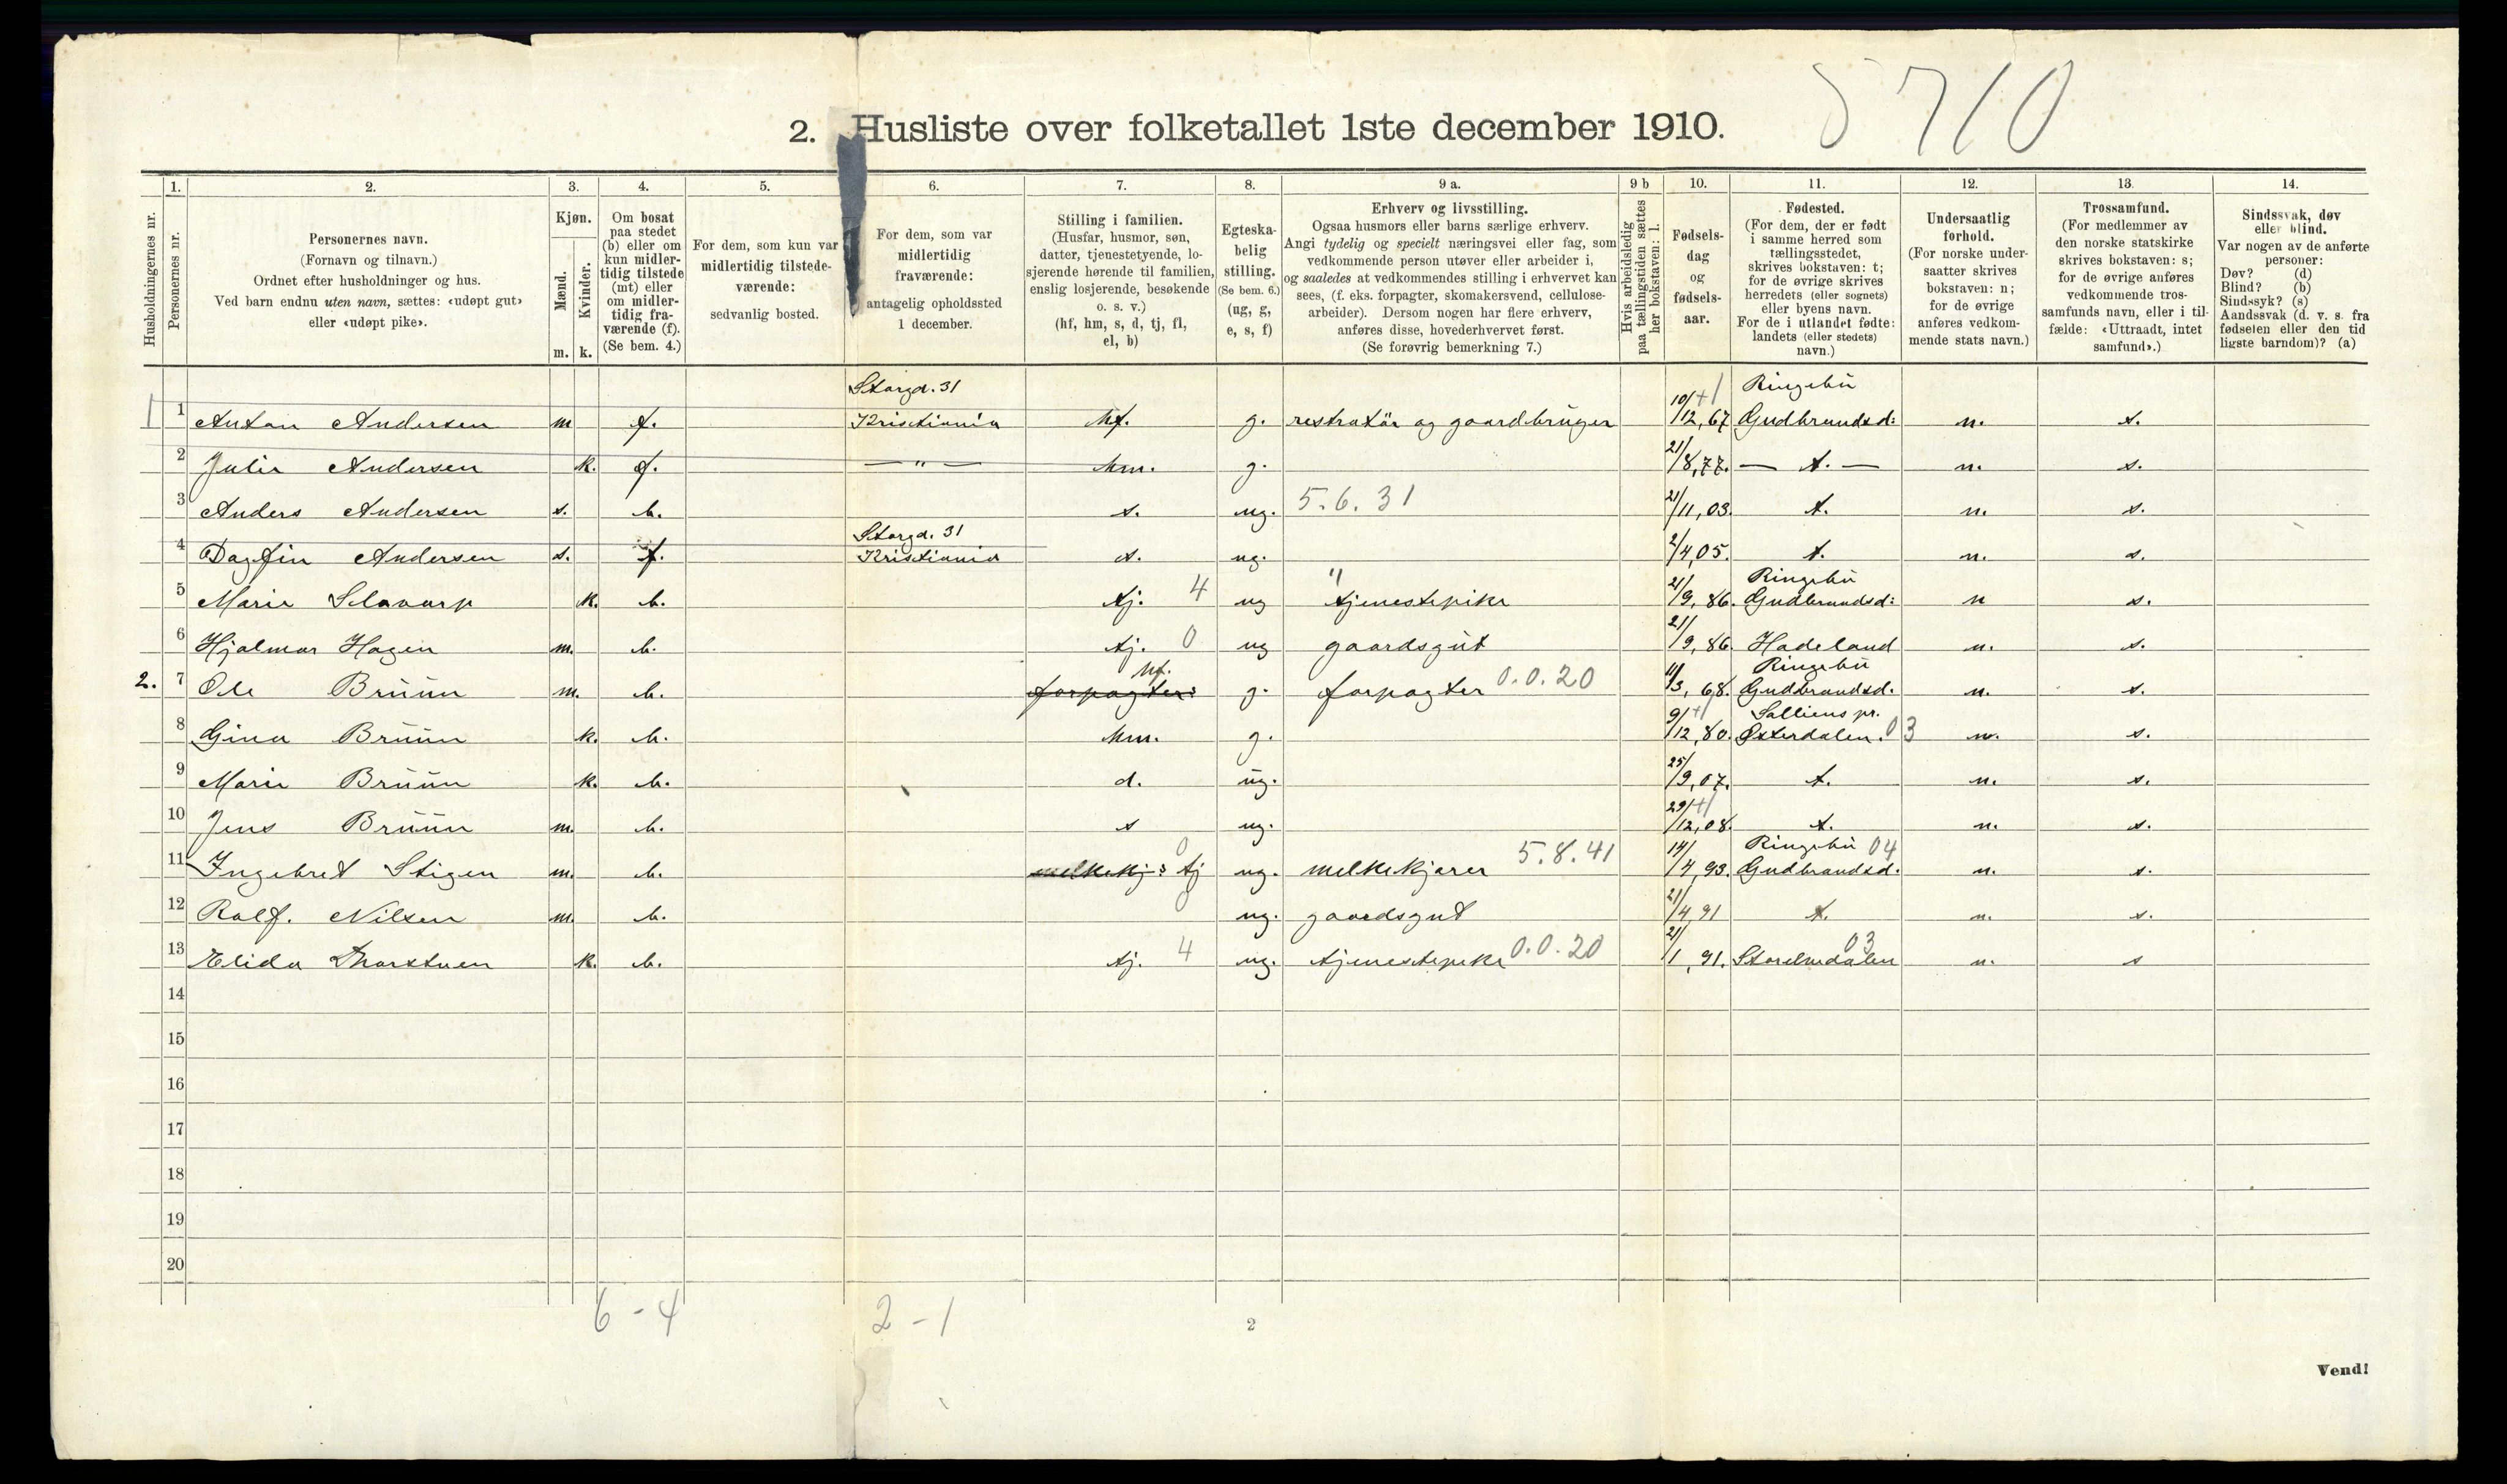 5710
2. Husliste over folketallet 1ste december 1910.
Husholdningernes nr.
1. Personernes nr.
2. Personernes navn.
(Fornavn og tilnavn.)
Ordnet efter husholdninger og hus.
Ved barn endnu uten navn, sættes: «udøpt gut»
eller «udøpt pike».
3. Kjøn.
Mænd. m.
Kvinder. k.
4. Om bosat
paa stedet
(b) eller om
kun midler-
tidig tilstede
(mt) eller
om midler-
tidig fra-
værende (f).
(Se bem. 4.)
5. For dem, som kun var
midlertidig tilstede-
værende:
sedvanlig bosted.
6. For dem, som var
midlertidig
fraværende:
antagelig opholdssted
1 december.
7. Stilling i familien.
(Husfar, husmor, søn,
datter, tjenestetyende, lo-
sjerende hørende til familien,
enslig losjerende, besøkende
o. s. v.)
(hf, hm, s, d, tj, fl,
el, b)
8. Egteska-
belig
stilling.
(Se bem. 6.)
(ug, g,
e, s, f)
9 a. Erhverv og livsstilling.
Ogsaa husmors eller barns særlige erhverv.
Angi tydelig og specielt næringsvei eller fag, som
vedkommende person utøver eller arbeider i,
og saaledes at vedkommendes stilling i erhvervet kan
sees, (f. eks. forpagter, skomakersvend, cellulose-
arbeider). Dersom nogen har flere erhverv,
anføres disse, hovederhvervet først.
(Se forøvrig bemerkning 7.)
9 b Hvis arbeidsledig
paa tællingstiden sættes
her bokstaven: l.
10. Fødsels-
dag
og
fødsels-
aar.
11. Fødested.
(For dem, der er født
i samme herred som
tællingsstedet,
skrives bokstaven: t;
for de øvrige skrives
herredets (eller sognets)
eller byens navn.
For de i utlandet fødte:
landets (eller stedets)
navn.)
12. Undersaatlig
forhold.
(For norske under-
saatter skrives
bokstaven: n;
for de øvrige
anføres vedkom-
mende stats navn.)
13. Trossamfund.
(For medlemmer av
den norske statskirke
skrives bokstaven: s;
for de øvrige anføres
vedkommende tros-
samfunds navn, eller i til-
fælde: «Uttraadt, intet
samfund».)
14. Sindssvak, døv
eller blind.
Var nogen av de anførte
personer:
Døv? (d)
Blind? (b)
Sindssyk? (s)
Aandssvak (d. v. s. fra
fødselen eller den tid
ligste barndom)? (a)
Storgd. 31 Ringebu
1 1 Anton Andersen m f. Kristiania hf. g. restratør og gaardbruger 10/12, 67 Gudbrandsd: n. s.
2 Julie Andersen k. f. — " — hm. g. 21/8, 77. — t. — n. s.
3 Anders Andersen s. b. s. ug. 5.6.31 21/11, 03. t. n. s.
Storgd. 31
4 Dagfin Andersen s. f. Kristiania s. ug. 2/4, 05. t. n. s.
Ringebu
5 Marie k. b. tj. 4 ug " tjenestepike 21/9, 86. Gudbrandsd: n s.
6 Hjalmar Hagen m. b. tj. 0 ug gaardsgut 21/9, 86. Hadeland n. s.
hf. Ringebu
2. 7 Ole Bruun m. b. forpagter: g. forpagter 0.0.20 11/3, 68. Gudbrandsd. n. s.
Solliens pr.
8 Gina Bruun k. b. hm. g. 9/12, 80. Østerdalen. 03 n. s.
9 Marie Bruun k. b. d. ug. 25/9, 07. t. n. s.
10 Jens Bruun m. b. s ug. 29/12, 08. t. n. s.
0 5.8.41 Ringebu 04
11 Ingebret Stigen m. b. melkekj: tj ug. melkekjører 14/4, 93. Gudbrandsd. n. s.
12 Ralf. Nilsen m. b. 0 ug. gaardsgut 21/4, 91 t. n. s.
13 Elida k. b. tj. 4 ug. tjenestepike 0.0.20 21/1, 91. Storelvedalen 03 n. s
14
15
16
17
18
19
20
6 - 4 2 - 1
2
Vend!